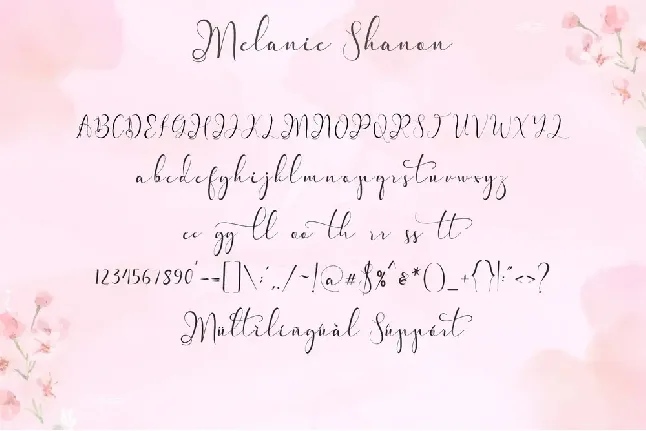 Melanie Shanon
ABCDEFGHIJKLMNOPQRSTUVWXYZ
abcdefghijklmnopqrstuvwxyz
ee gg ll oo th rr ss tt
1234567890'~-=[]\;',./~!@#$%^&*()_+{}|:"<>?
Mültilingúàl Súppórt